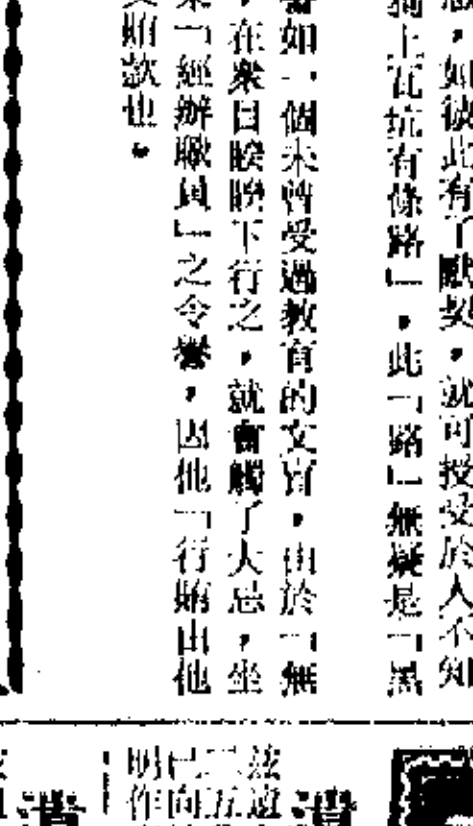 如彼此有了默契，就可授受於人不知
上瓦坑有條路」，此「路」無疑是「黑
如一個未曾受過教育的文盲，由於「無
，在衆目睽睽下行之，就會觸了大忌，坐
「經辦職員」之令譽，因他「行賄由他
賄款也。
遺
茲